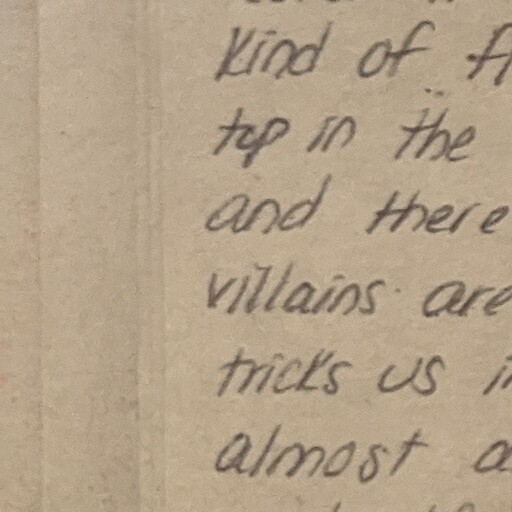 kind of
top in the
and there
villains are
tricks us
almost